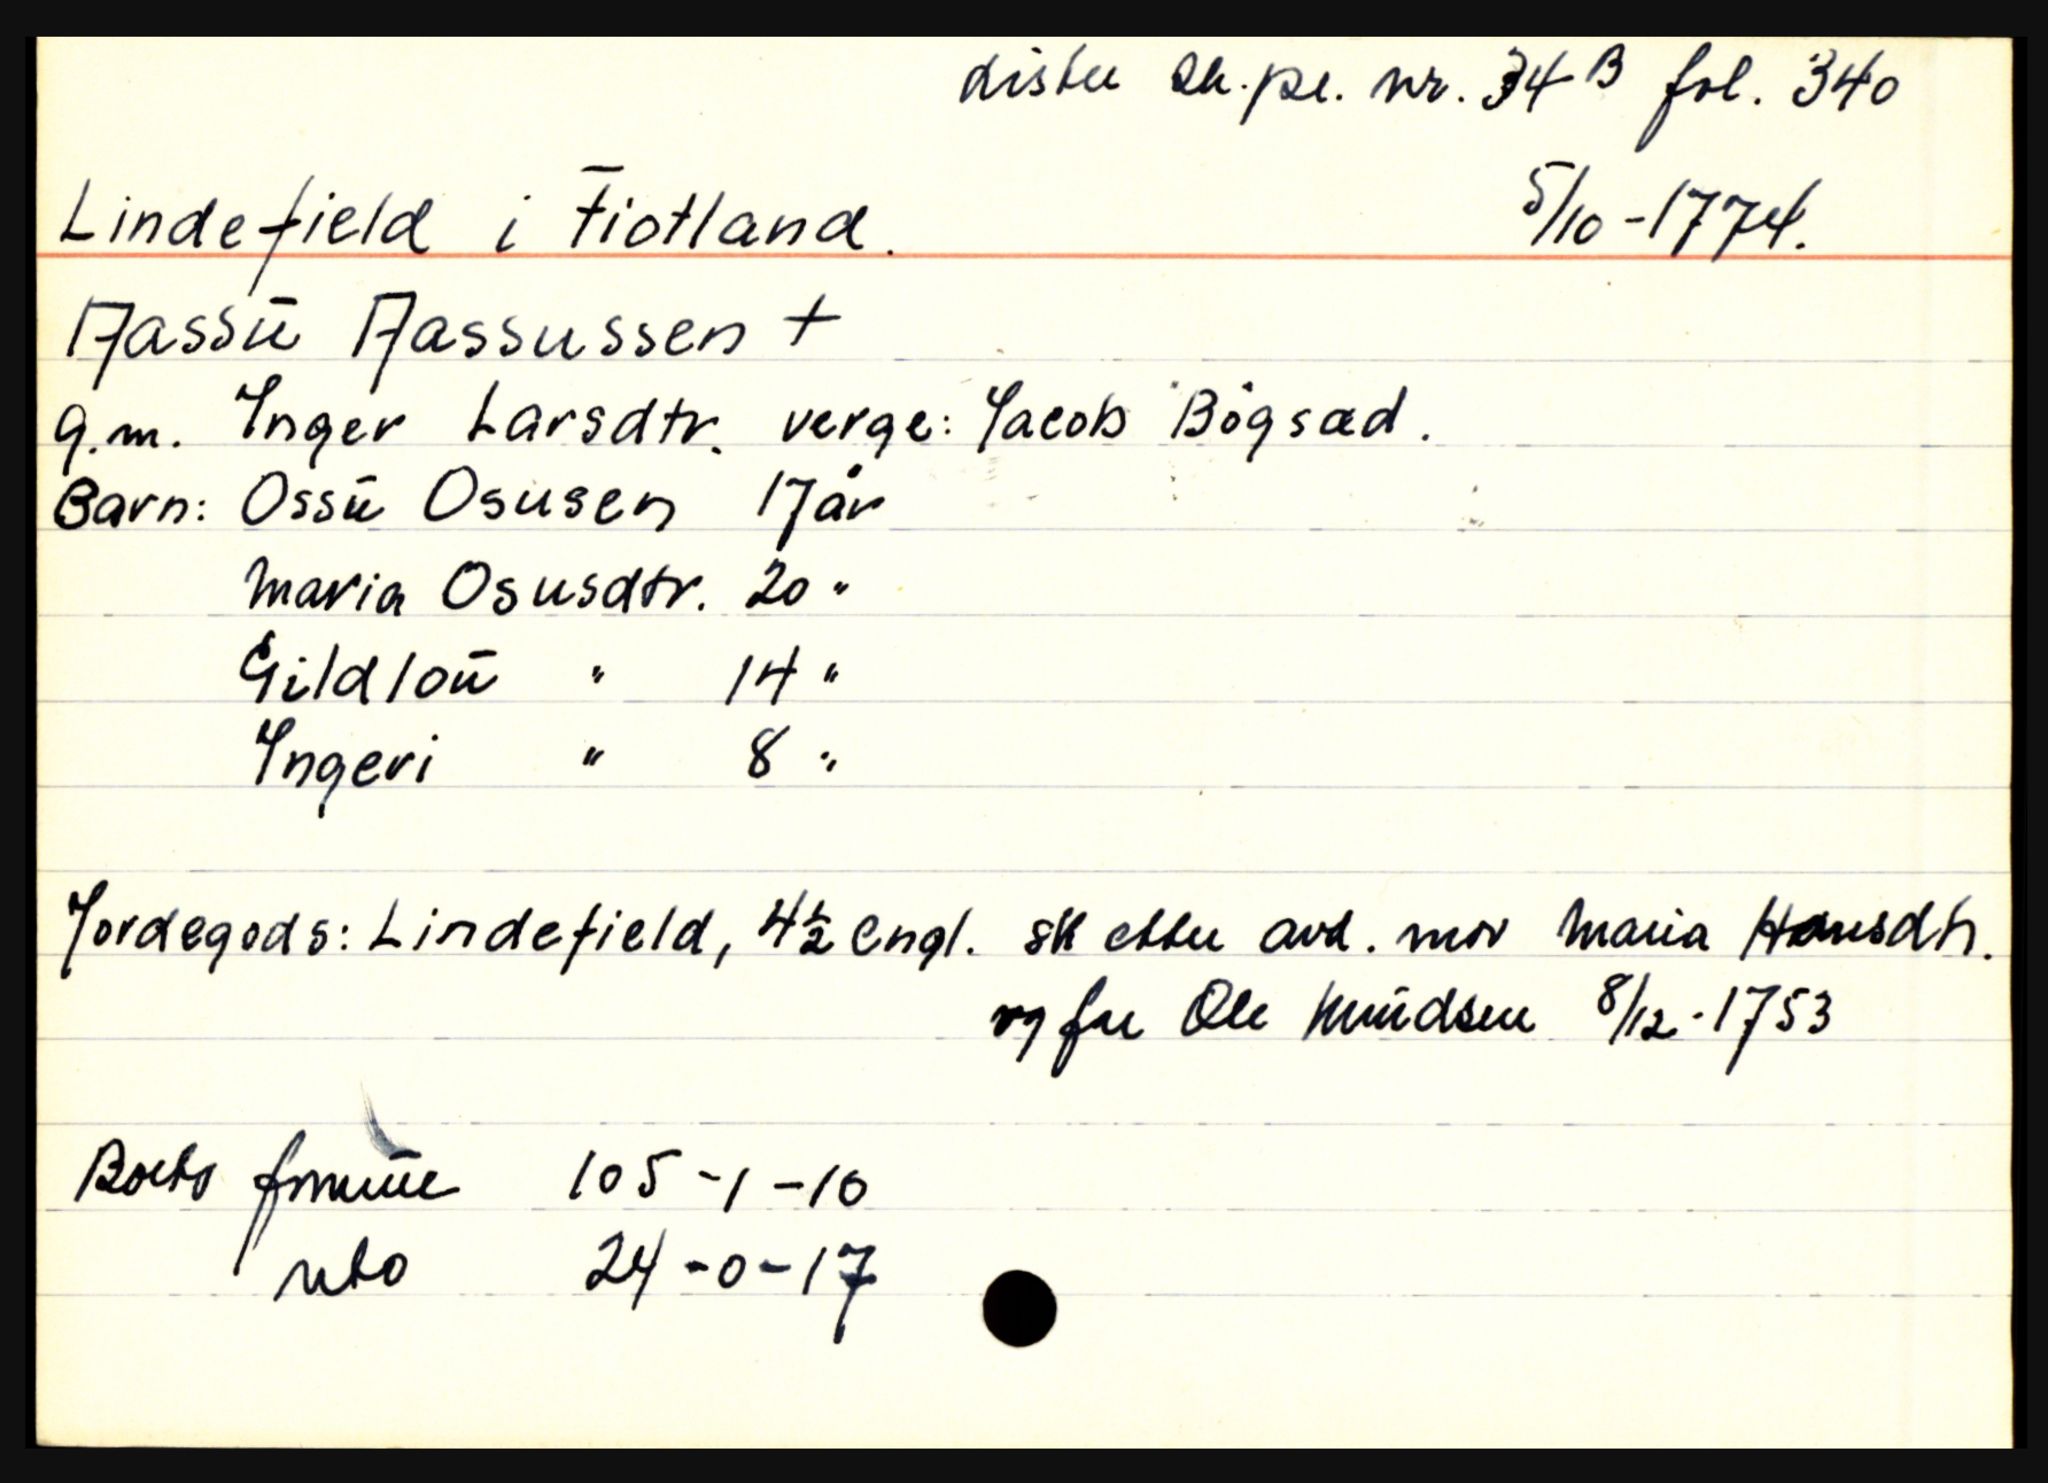 Lister Sk.pr. nr. 34 B fol. 340
Lindefield i Fiotland. 5/10-1774.
Aassŭ Aassussen +
g.m. Inger Larsdtr. verge: Jacob Bögsæd.
Barn: Ossŭ Osusen 17 år
Maria Osusdtr. 20 "
Gildloŭ " 14 "
Ingeri " 8 "
Jordegods: Lindefield, 4½ engl. sk etter avd. mor Maria Hansdtr.
og far Ole Knŭdsen 8/12-1753
Boets formŭe 105-1-10
nto 24-0-17